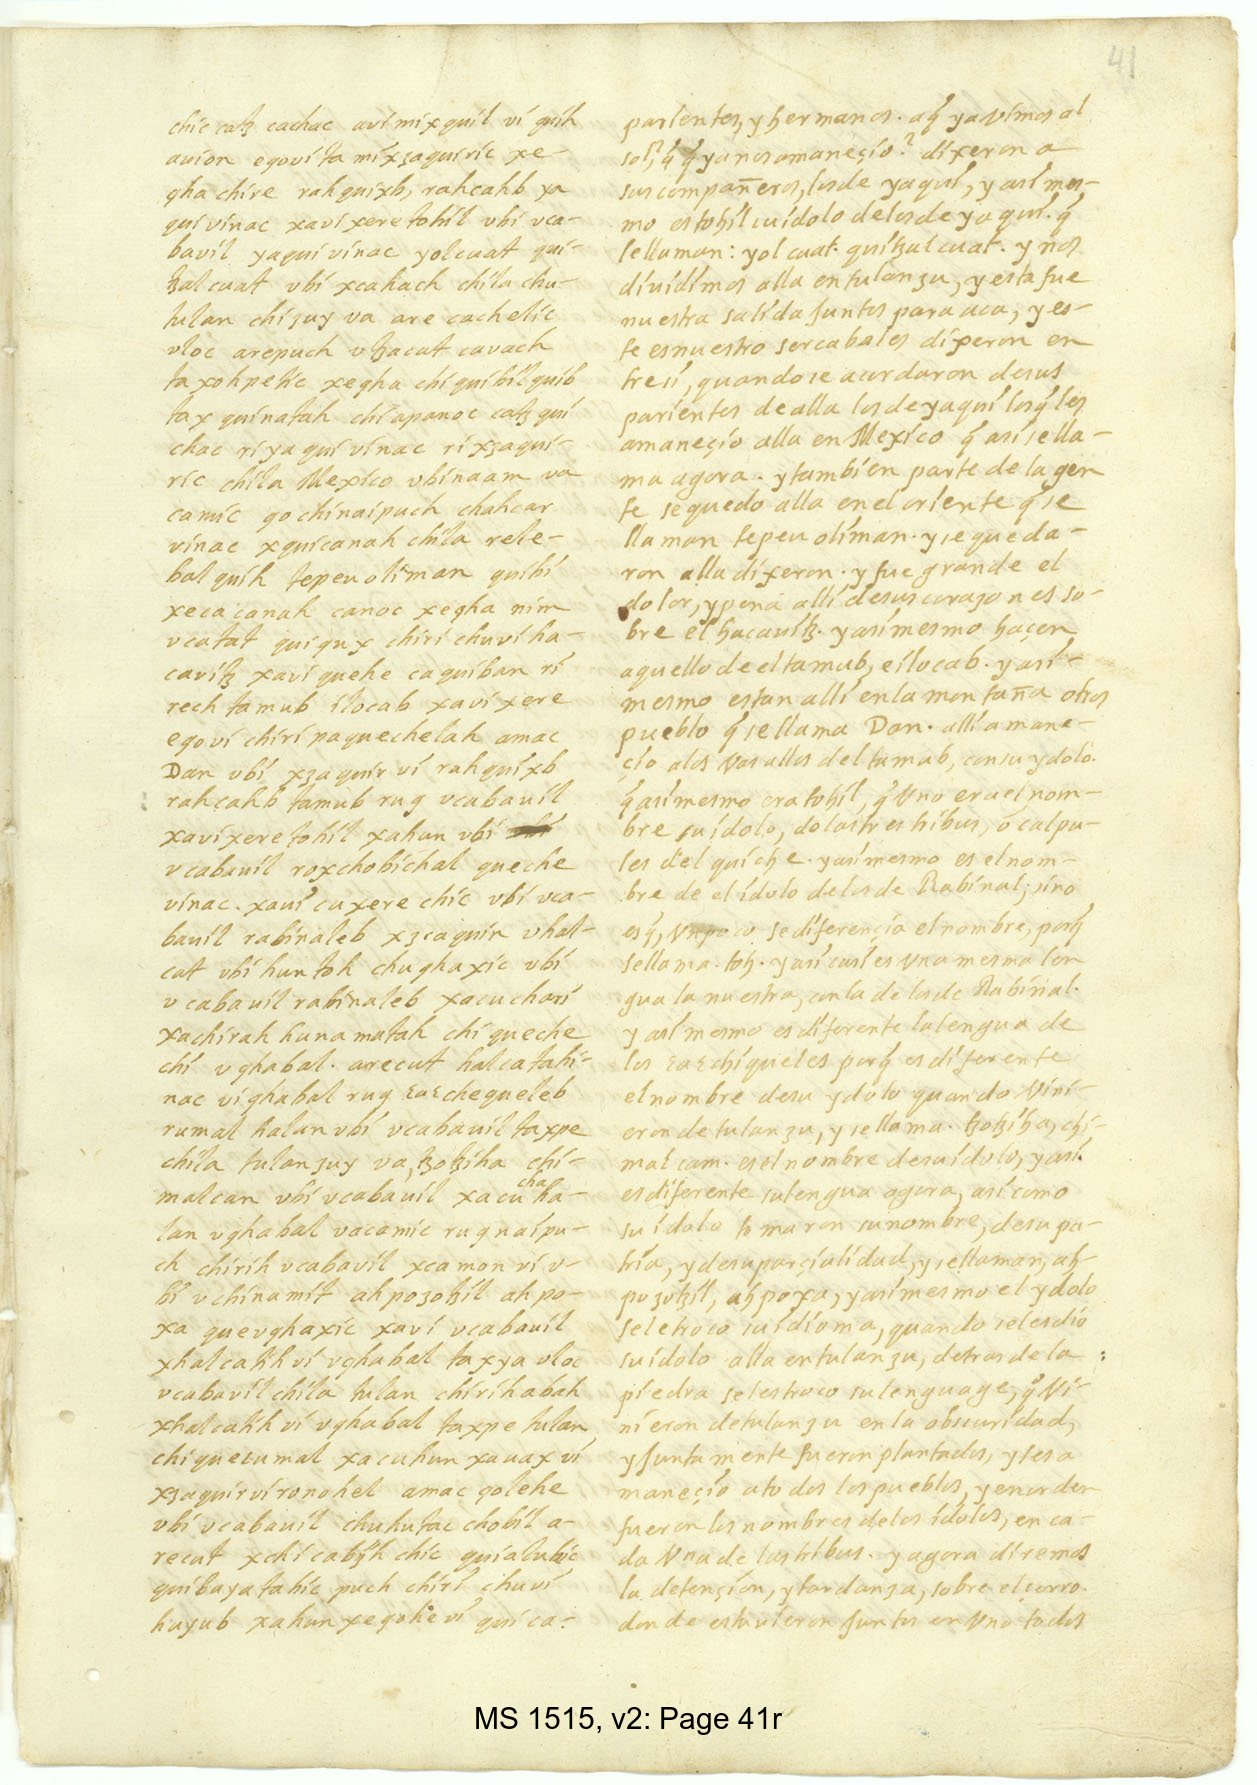 41
chic catz cachac avi mixquil vi quih
auion egovi ta mix zaquiric xe-
qha chire rahquixb, rahcahb ya
qui vinac xavi xere tohil vbi vca-
bavil yaqui vinac yolcuat qui-
tzalcuat vbi xcahach chila chu-
tulan chi zuy va are cachelic
vloc arepuch vtzacat cavach
ta xohpetic xeqha chi quibil quib
tax quinatah chi apanoc catz qui
chac ri yaqui vinac ri xzaqui-
ric chila Mexico vbinaam va
camic go chinaipuch chahcar
vinac xquicanah chila rele-
bal quih tepeu oliman quibi
xecacanah canoc xeqha nim
vcatat qui qux chiri chuvi ha-
cavitz xavi quehe caquiban ri
rech tamub ilocab xavi xere
egovi chiri paquechelah amac
Dan vbi xzaquir vi rahquixb
rahcahb tamub ruq vcabauil
xavi xere tohil xahun vbi
vcabauil roxchobichal queche
vinac. xaui cuxere chic vbi vca-
bauil rabinaleb xzcaquin vhal-
cat vbi huntoh chuqhaxic vbi
vcabauil rabinaleb xacuchari
xachirah hunamatah chi queche
chi vqhabal. arecut halcatahi-
nac vi qhabal ruq cacchequeleb
rumal halan vbi vcabauil taxpe
chila tulan zuy va, tzotziha chi-
malcan vbi vcabauil xacu cha ha-
lan vqhabal vacamic ruq naipu-
ch chirih vcabavil xcamon vi v-
bi vchinamit ahpozotzil ahpo-
xa quevqhaxic xavi vcabauil
xhalcatih vi vqhabal taxya vloc
vcabavil chila tulan chirihabah
xhalcatih vi vqhabal taxpe tulan
chi quecumal xacuhun xauax vi
xzaquir vi ronohel amac qolehe
vbi vcabauil chuhutac chobil a-
recut xchicabijh chic quialuhic
quibayatahic puch chiri chuvi
huyub xahun xeqohe vi qui ca-
parientes, y hermanos. aq̃ ya vimos al
sol, q̃ q̃ ya nos amaneçio? dixeron a
sus compañeros, los de yaqui, y asi mes-
mo es tohil su idolo de los de yaqui. q̃
se llaman: yolcuat. quitzalcuat. y nos
dividimos alla en tulanzu, y esta fue
nuestra salida juntos para aca, y es-
te es nuestro ser cabales dixeron en
tre si, quando se acordaron de sus
parientes de alla los de yaqui los q̃ les
amaneçio alla en Mexico q̃ asi se lla-
ma agora. y tambien parte de la gen
te se quedo alla en el oriente q̃ se
llaman tepeu oliman. y se queda-
ron alla dixeron. y fue grande el
dolor, y pena alli de sus corazones so-
bre el hacauitz. y asi mesmo haçen
aquello de el tamub, e ilocab. y asi
mesmo estan alli en la montaña otros
pueblo q̃ se llama Dan. alli amane-
çio a los vasallos del tamub, con su ydolo.
q̃ asi mesmo era tohil, q̃ vno era el nom-
bre su idolo, de las tres tribus, o calpu-
les del quiche. y asi mesmo es el nom-
bre de el idolo de los de Rabinal; sino
es q̃, vn poco se diferençia el nombre, porq̃
se llama. toh. y asi casi es vna mesma len
gua la nuestra, con la de los de Rabinal.
y asi mesmo es diferente la lengua de
los cacchiqueles porq̃ es diferente
el nombre de su ydolo quando vini-
eron de tulanzu, y se llama. tzotziha, chi-
malcam. es el nombre de su idolo, y asi
es diferente su lengua agora, asi como
su idolo tomaron su nombre, de su pa-
tria, y de su parçialidad, y se llaman, ah-
pozotzil, ahpoxa, y asi mesmo el ydolo
se le troco su idioma, quando se les dio
su idolo alla en tulanzu, detras de la
piedra se les troco su lenguage, q̃ vi-
nieron de tulanzu en la obscuridad,
y juntamente fueron plantados, y les a
maneçio a todos los pueblos, y en orden
fueron los nombres de los idolos, en ca-
da vna de las tribus. y agora diremos
la detençion, y tardanza, sobre el çerro.
donde estuvieron juntos en vno todos
MS 1515, v2: Page 41r